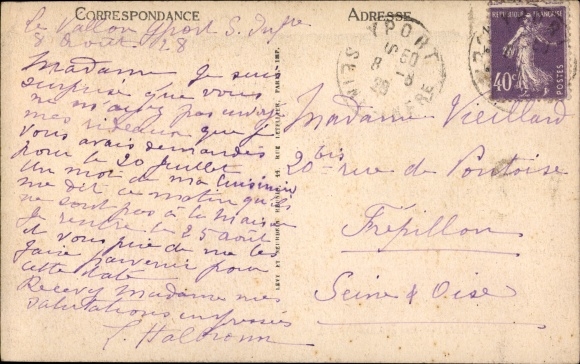 CORRESPONDANCE
Le Vallon Yport S. Infre
8 Août 28
Madame Je suis
surprise que vous
ne m'ayez pas envoyé
mes rideaux que je
vous avais demandés
pour le 20 Juillet
Un mot de ma cuisinière
me dit ce matin qu'ils
ne sont pas à la maison
Je rentre le 25 août
et vous prie de me les
faire parvenir pour
cette date
Recevez Madame mes
salutations empressées
ADRESSE
YPORT
SEINE
40c
RÉPUBLIQUE FRANÇAISE
POSTES
Madame Vieillard
20 bis rue de Pontoise
Frépillon
Seine & Oise
LEVY ET NEURDEIN RÉUNIS, 44, RUE LETELLIER, PARIS-IMP.